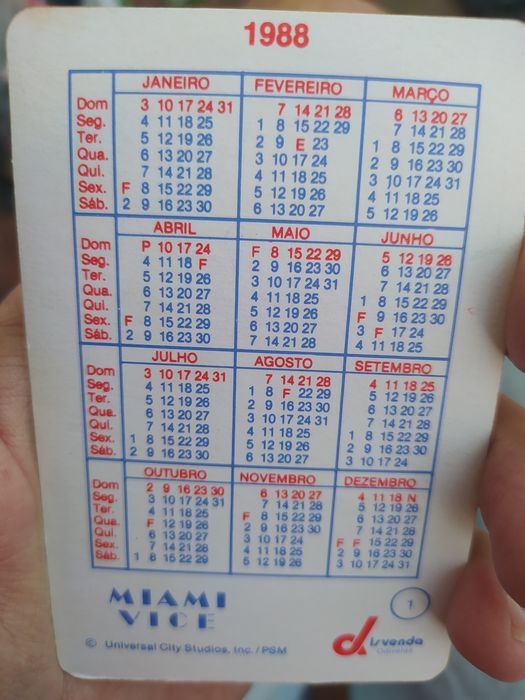 1988
JANEIRO FEVEREIRO MARÇO
Dom 3 10 17 24 31 7 14 21 28 6 13 20 27
Seg. 4 11 18 25 1 8 15 22 29 7 14 21 28
Ter. 5 12 19 26 2 9 E 23 1 8 15 22 29
Qua. 6 13 20 27 3 10 17 24 2 9 16 23 30
Qui. 7 14 21 28 4 11 18 25 3 10 17 24 31
Sex. F 8 15 22 29 5 12 19 26 4 11 18 25
Sáb. 2 9 16 23 30 6 13 20 27 5 12 19 26
ABRIL MAIO JUNHO
Dom P 10 17 24 F 8 15 22 29 5 12 19 26
Seg. 4 11 18 F 2 9 16 23 30 6 13 20 27
Ter. 5 12 19 26 3 10 17 24 31 7 14 21 28
Qua. 6 13 20 27 4 11 18 25 1 8 15 22 29
Qui. 7 14 21 28 5 12 19 26 F 9 16 23 30
Sex. F 8 15 22 29 6 13 20 27 3 F 17 24
Sáb. 2 9 16 23 30 7 14 21 28 4 11 18 25
JULHO AGOSTO SETEMBRO
Dom 3 10 17 24 31 7 14 21 28 4 11 18 25
Seg. 4 11 18 25 1 8 F 22 29 5 12 19 26
Ter. 5 12 19 26 2 9 16 23 30 6 13 20 27
Qua. 6 13 20 27 3 10 17 24 31 7 14 21 28
Qui. 7 14 21 28 4 11 18 25 1 8 15 22 29
Sex. 1 8 15 22 29 5 12 19 26 2 9 16 23 30
Sáb. 2 9 16 23 30 6 13 20 27 3 10 17 24
OUTUBRO NOVEMBRO DEZEMBRO
Dom 2 9 16 23 30 6 13 20 27 4 11 18 N
Seg. 3 10 17 24 31 7 14 21 28 5 12 19 26
Ter. 4 11 18 25 F 8 15 22 29 6 13 20 27
Qua. F 12 19 26 2 9 16 23 30 7 14 21 28
Qui. 6 13 20 27 3 10 17 24 F F 15 22 29
Sex. 7 14 21 28 4 11 18 25 2 9 16 23 30
Sáb. 1 8 15 22 29 5 12 19 26 3 10 17 24 31
MIAMI
VICE
1
disvenda
© Universal City Studios, Inc. / PSM